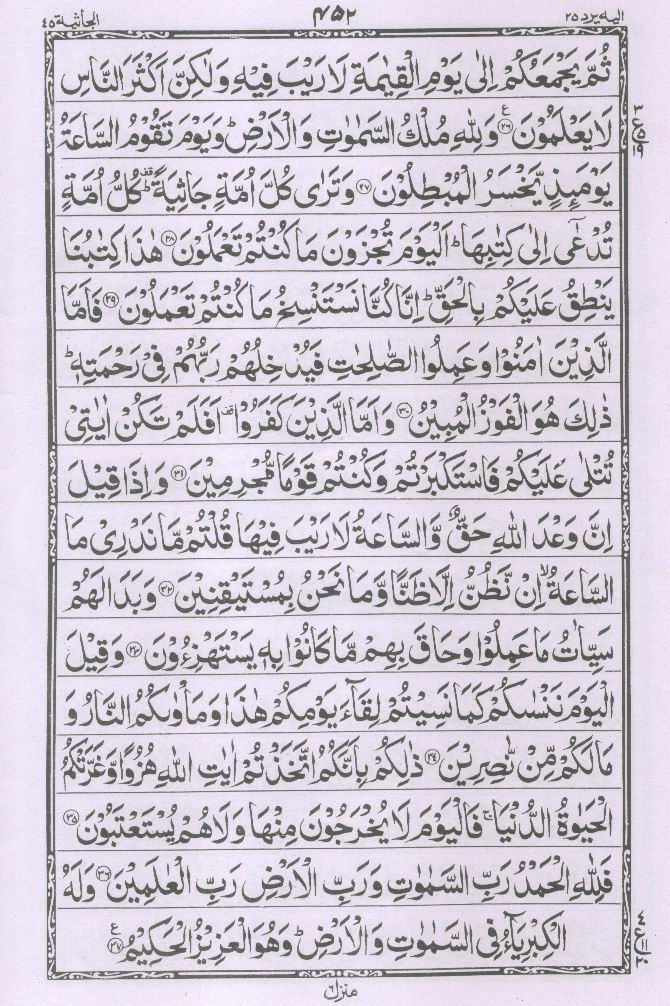 اليه يرد ٢٥
٤٥٢
الجاثية ٤٥
ثُمَّ يَجْمَعُكُمْ اِلٰى يَوْمِ الْقِيٰمَةِ لَا رَيْبَ فِيْهِ وَلٰكِنَّ اَكْثَرَ النَّاسِ
لَا يَعْلَمُوْنَ ﴿٢٦﴾ ع وَلِلّٰهِ مُلْكُ السَّمٰوٰتِ وَالْاَرْضِ ؕ وَيَوْمَ تَقُوْمُ السَّاعَةُ
يَوْمَئِذٍ يَّخْسَرُ الْمُبْطِلُوْنَ ﴿٢٧﴾ وَتَرٰى كُلَّ اُمَّةٍ جَاثِيَةً قف كُلُّ اُمَّةٍ
تُدْعٰۤى اِلٰى كِتٰبِهَا ؕ اَلْيَوْمَ تُجْزَوْنَ مَا كُنْتُمْ تَعْمَلُوْنَ ﴿٢٨﴾ هٰذَا كِتٰبُنَا
يَنْطِقُ عَلَيْكُمْ بِالْحَقِّ ؕ اِنَّا كُنَّا نَسْتَنْسِخُ مَا كُنْتُمْ تَعْمَلُوْنَ ﴿٢٩﴾ فَاَمَّا
الَّذِيْنَ اٰمَنُوْا وَعَمِلُوا الصّٰلِحٰتِ فَيُدْخِلُهُمْ رَبُّهُمْ فِيْ رَحْمَتِهٖ ؕ
ذٰلِكَ هُوَ الْفَوْزُ الْمُبِيْنُ ﴿٣٠﴾ وَاَمَّا الَّذِيْنَ كَفَرُوْا قف اَفَلَمْ تَكُنْ اٰيٰتِيْ
تُتْلٰى عَلَيْكُمْ فَاسْتَكْبَرْتُمْ وَكُنْتُمْ قَوْمًا مُّجْرِمِيْنَ ﴿٣١﴾ وَاِذَا قِيْلَ
اِنَّ وَعْدَ اللّٰهِ حَقٌّ وَّالسَّاعَةُ لَا رَيْبَ فِيْهَا قُلْتُمْ مَّا نَدْرِيْ مَا
السَّاعَةُ ۙ اِنْ نَّظُنُّ اِلَّا ظَنًّا وَّمَا نَحْنُ بِمُسْتَيْقِنِيْنَ ﴿٣٢﴾ وَبَدَا لَهُمْ
سَيِّاٰتُ مَا عَمِلُوْا وَحَاقَ بِهِمْ مَّا كَانُوْا بِهٖ يَسْتَهْزِءُوْنَ ﴿٣٣﴾ وَقِيْلَ
الْيَوْمَ نَنْسٰىكُمْ كَمَا نَسِيْتُمْ لِقَآءَ يَوْمِكُمْ هٰذَا وَمَاْوٰىكُمُ النَّارُ وَ
مَا لَكُمْ مِّنْ نّٰصِرِيْنَ ﴿٣٤﴾ ذٰلِكُمْ بِاَنَّكُمُ اتَّخَذْتُمْ اٰيٰتِ اللّٰهِ هُزُوًا وَّغَرَّتْكُمُ
الْحَيٰوةُ الدُّنْيَا ۚ فَالْيَوْمَ لَا يُخْرَجُوْنَ مِنْهَا وَلَا هُمْ يُسْتَعْتَبُوْنَ ﴿٣٥﴾
فَلِلّٰهِ الْحَمْدُ رَبِّ السَّمٰوٰتِ وَرَبِّ الْاَرْضِ رَبِّ الْعٰلَمِيْنَ ﴿٣٦﴾ وَلَهُ
الْكِبْرِيَآءُ فِى السَّمٰوٰتِ وَالْاَرْضِ ؕ وَهُوَ الْعَزِيْزُ الْحَكِيْمُ ﴿٣٧﴾ ع
منزل ٦